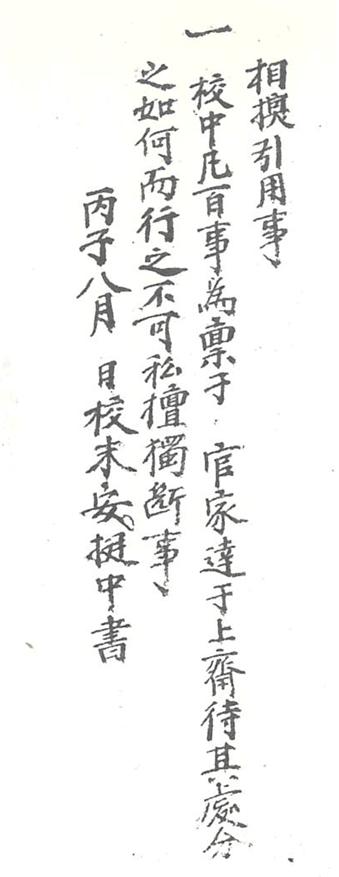 相換引用事
一 校中凡百事為稟于 官家達于上齋待其處分
之如何而行之不可私擅獨斷事
丙子八月 日校末安挺中書